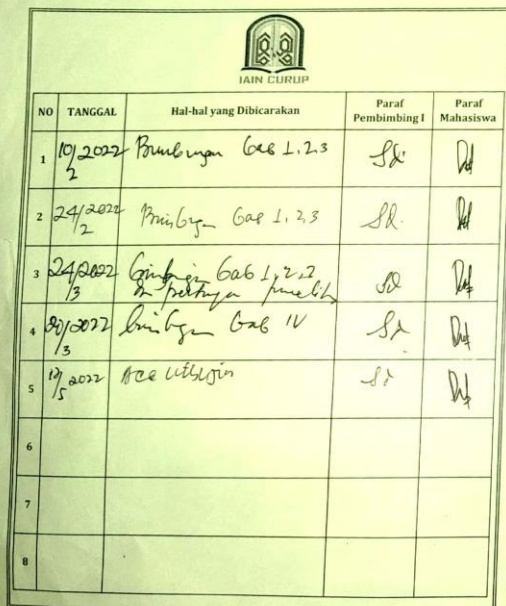 IAIN CURUP
NO TANGGAL Hal-hal yang Dibicarakan Paraf Pembimbing I Paraf Mahasiswa
1 10/2 2022 Bimbingan Bab 1, 2, 3
2 24/2 2022 Bimbingan Bab 1, 2, 3
3 24/3 2022 Bimbingan Bab 1, 2, 3
4 30/3 2022 Bimbingan Bab IV
5 12/5 2022 Acc
6
7
8